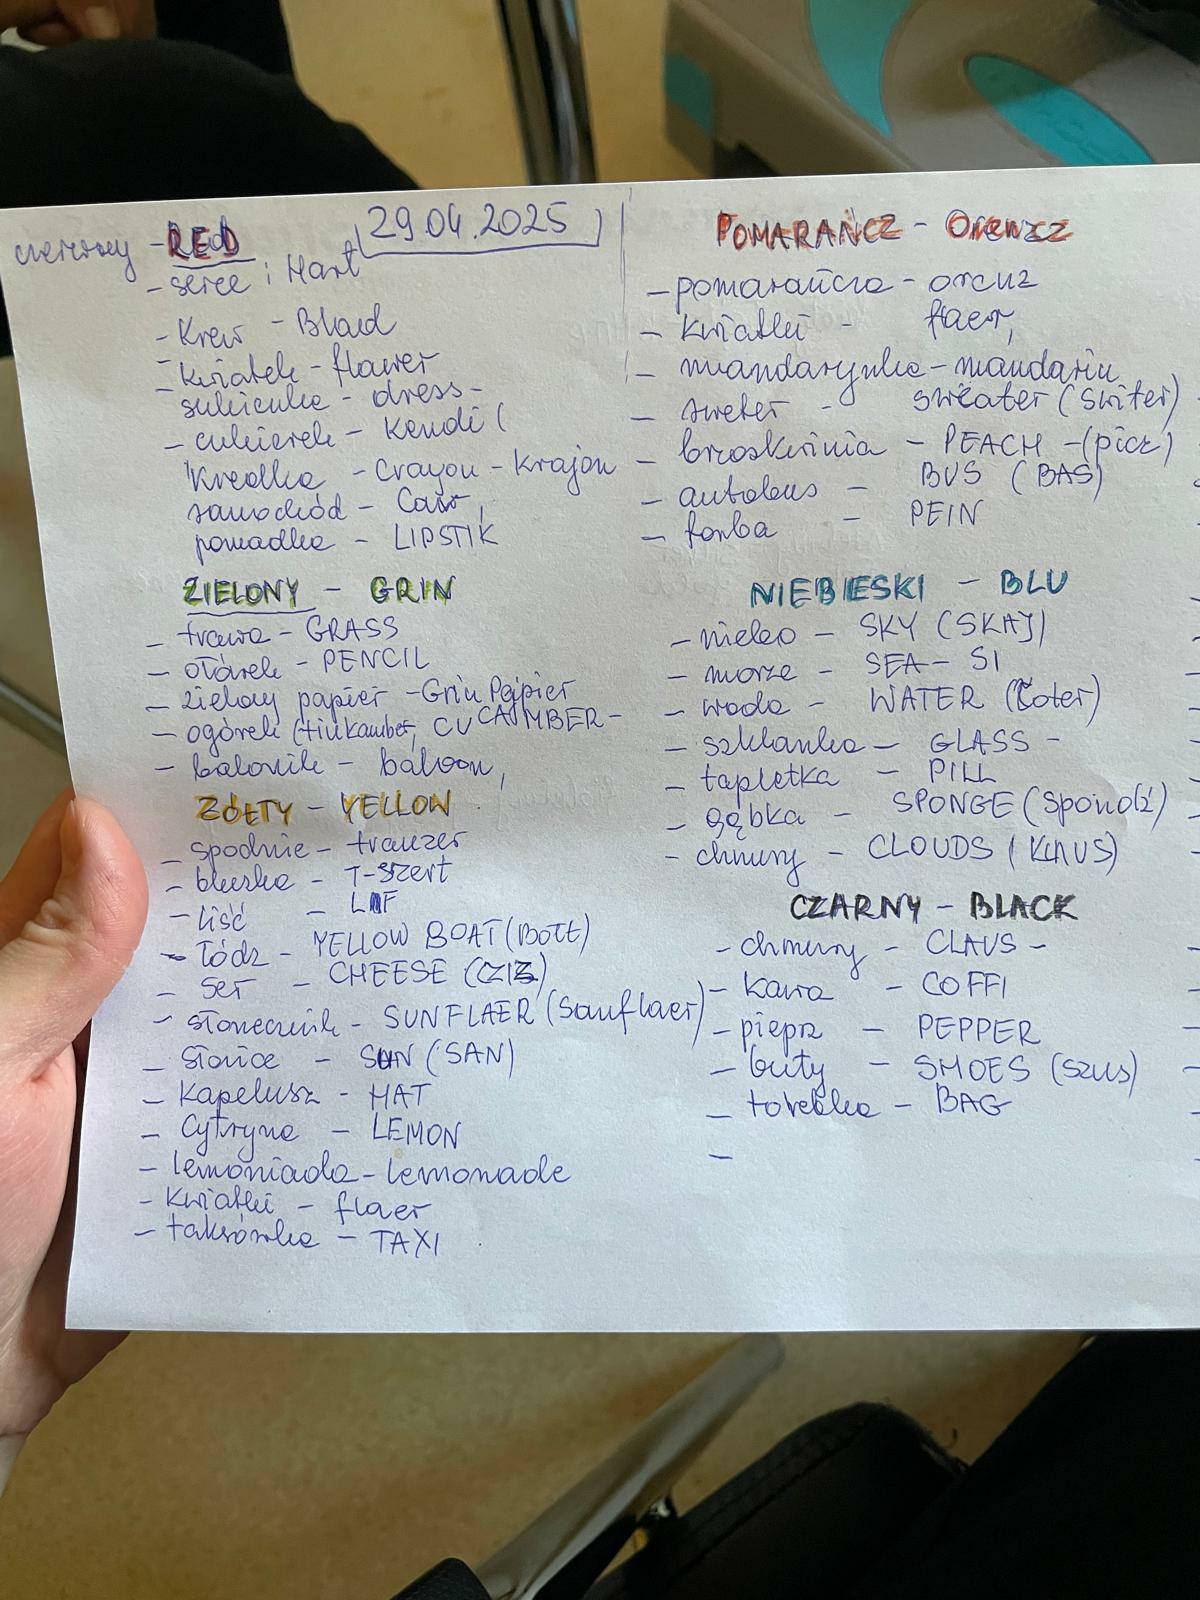 29.04.2025
czerwony - RED
- serce : Hart
- Krew - Blad
- kwiatek - flawer
- sukienka - dress -
- cukierek - Kendi (
Kredka - Crayon - Krajon
samochód - Car,
pomadka - LIPSTIK
ZIELONY - GRIN
- trawa - GRASS
- ołówek - PENCIL
- zielony papier - Grin Pejpier
- ogórek (Hiukamber, CUCAMBER -
- balonik - baloon,
ŻÓŁTY - YELLOW
- spodnie - trauzer
- bluzka - T-szert
- liść - LIF
- łódz - YELLOW BOAT (BOTT)
- ser - CHEESE (CZIZ)
- słonecznik - SUNFLAER (Sanflaer)
- słońce - SUN (SAN)
- Kapelusz - HAT
- Cytryna - LEMON
- lemoniada - lemonade
- kwiatki - flaer
- taksówka - TAXI
POMARAŃCZ - Orencz
- pomarańcza - orenz
- kwiatki - flaer,
- mandarynka - mandarin
- sweter - sweater (switer)
- brzoskwinia - PEACH - (picz)
- autobus - BUS (BAS)
- farba - PEIN
NIEBIESKI - BLU
- niebo - SKY (SKAJ)
- morze - SEA - SI
- woda - WATER (Łoter)
- szklanka - GLASS -
- tapletka - PILL
- gąbka - SPONGE (Spondż)
- chmury - CLOUDS (KLAUS)
CZARNY - BLACK
- chmury - CLAUS -
- kawa - COFFI
- pieprz - PEPPER
- buty - SHOES (SZUS)
- torebka - BAG
-